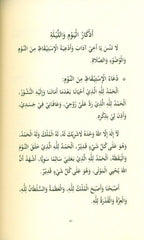 أَذْكَارُ الْيَوْمِ وَاللَّيْلَةِ
لَا تَنْسَ يَا أَخِي آدَابَ وَأَدْعِيَةَ الْاِسْتِيْقَاظِ مِنَ النَّوْمِ
وَالْوُضُوْءِ وَالصَّلَاةِ.
دُعَاءُ الْاِسْتِيْقَاظِ مِنَ النَّوْمِ:
اَلْحَمْدُ لِلّٰهِ الَّذِيْ أَحْيَانَا بَعْدَمَا أَمَاتَنَا وَإِلَيْهِ النُّشُوْرُ.
اَلْحَمْدُ لِلّٰهِ الَّذِيْ رَدَّ عَلَيَّ رُوْحِيْ، وَعَافَانِيْ فِيْ جَسَدِيْ،
وَأَذِنَ لِيْ بِذِكْرِهِ.
لَا إِلٰهَ إِلَّا اللّٰهُ وَحْدَهُ لَا شَرِيْكَ لَهُ، لَهُ الْمُلْكُ وَلَهُ الْحَمْدُ،
وَهُوَ عَلَى كُلِّ شَيْءٍ قَدِيْرٌ. اَلْحَمْدُ لِلّٰهِ الَّذِيْ خَلَقَ النَّوْمَ
وَالْيَقَظَةَ، اَلْحَمْدُ لِلّٰهِ الَّذِيْ بَعَثَنِيْ سَالِمًا سَوِيًّا، أَشْهَدُ أَنَّ
اللّٰهَ يُحْيِي الْمَوْتَى، وَهُوَ عَلَى كُلِّ شَيْءٍ قَدِيْرٌ.
أَصْبَحْنَا وَأَصْبَحَ الْمُلْكُ لِلّٰهِ، وَالْعَظَمَةُ وَالسُّلْطَانُ لِلّٰهِ،
وَالْعِزَّةُ وَالْقُدْرَةُ لِلّٰهِ.